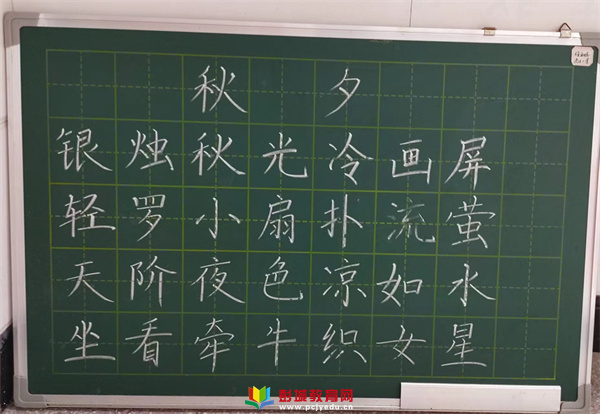 秋夕
银烛秋光冷画屏
轻罗小扇扑流萤
天阶夜色凉如水
坐看牵牛织女星
彭璇教育网
www.pcjyedu.cn